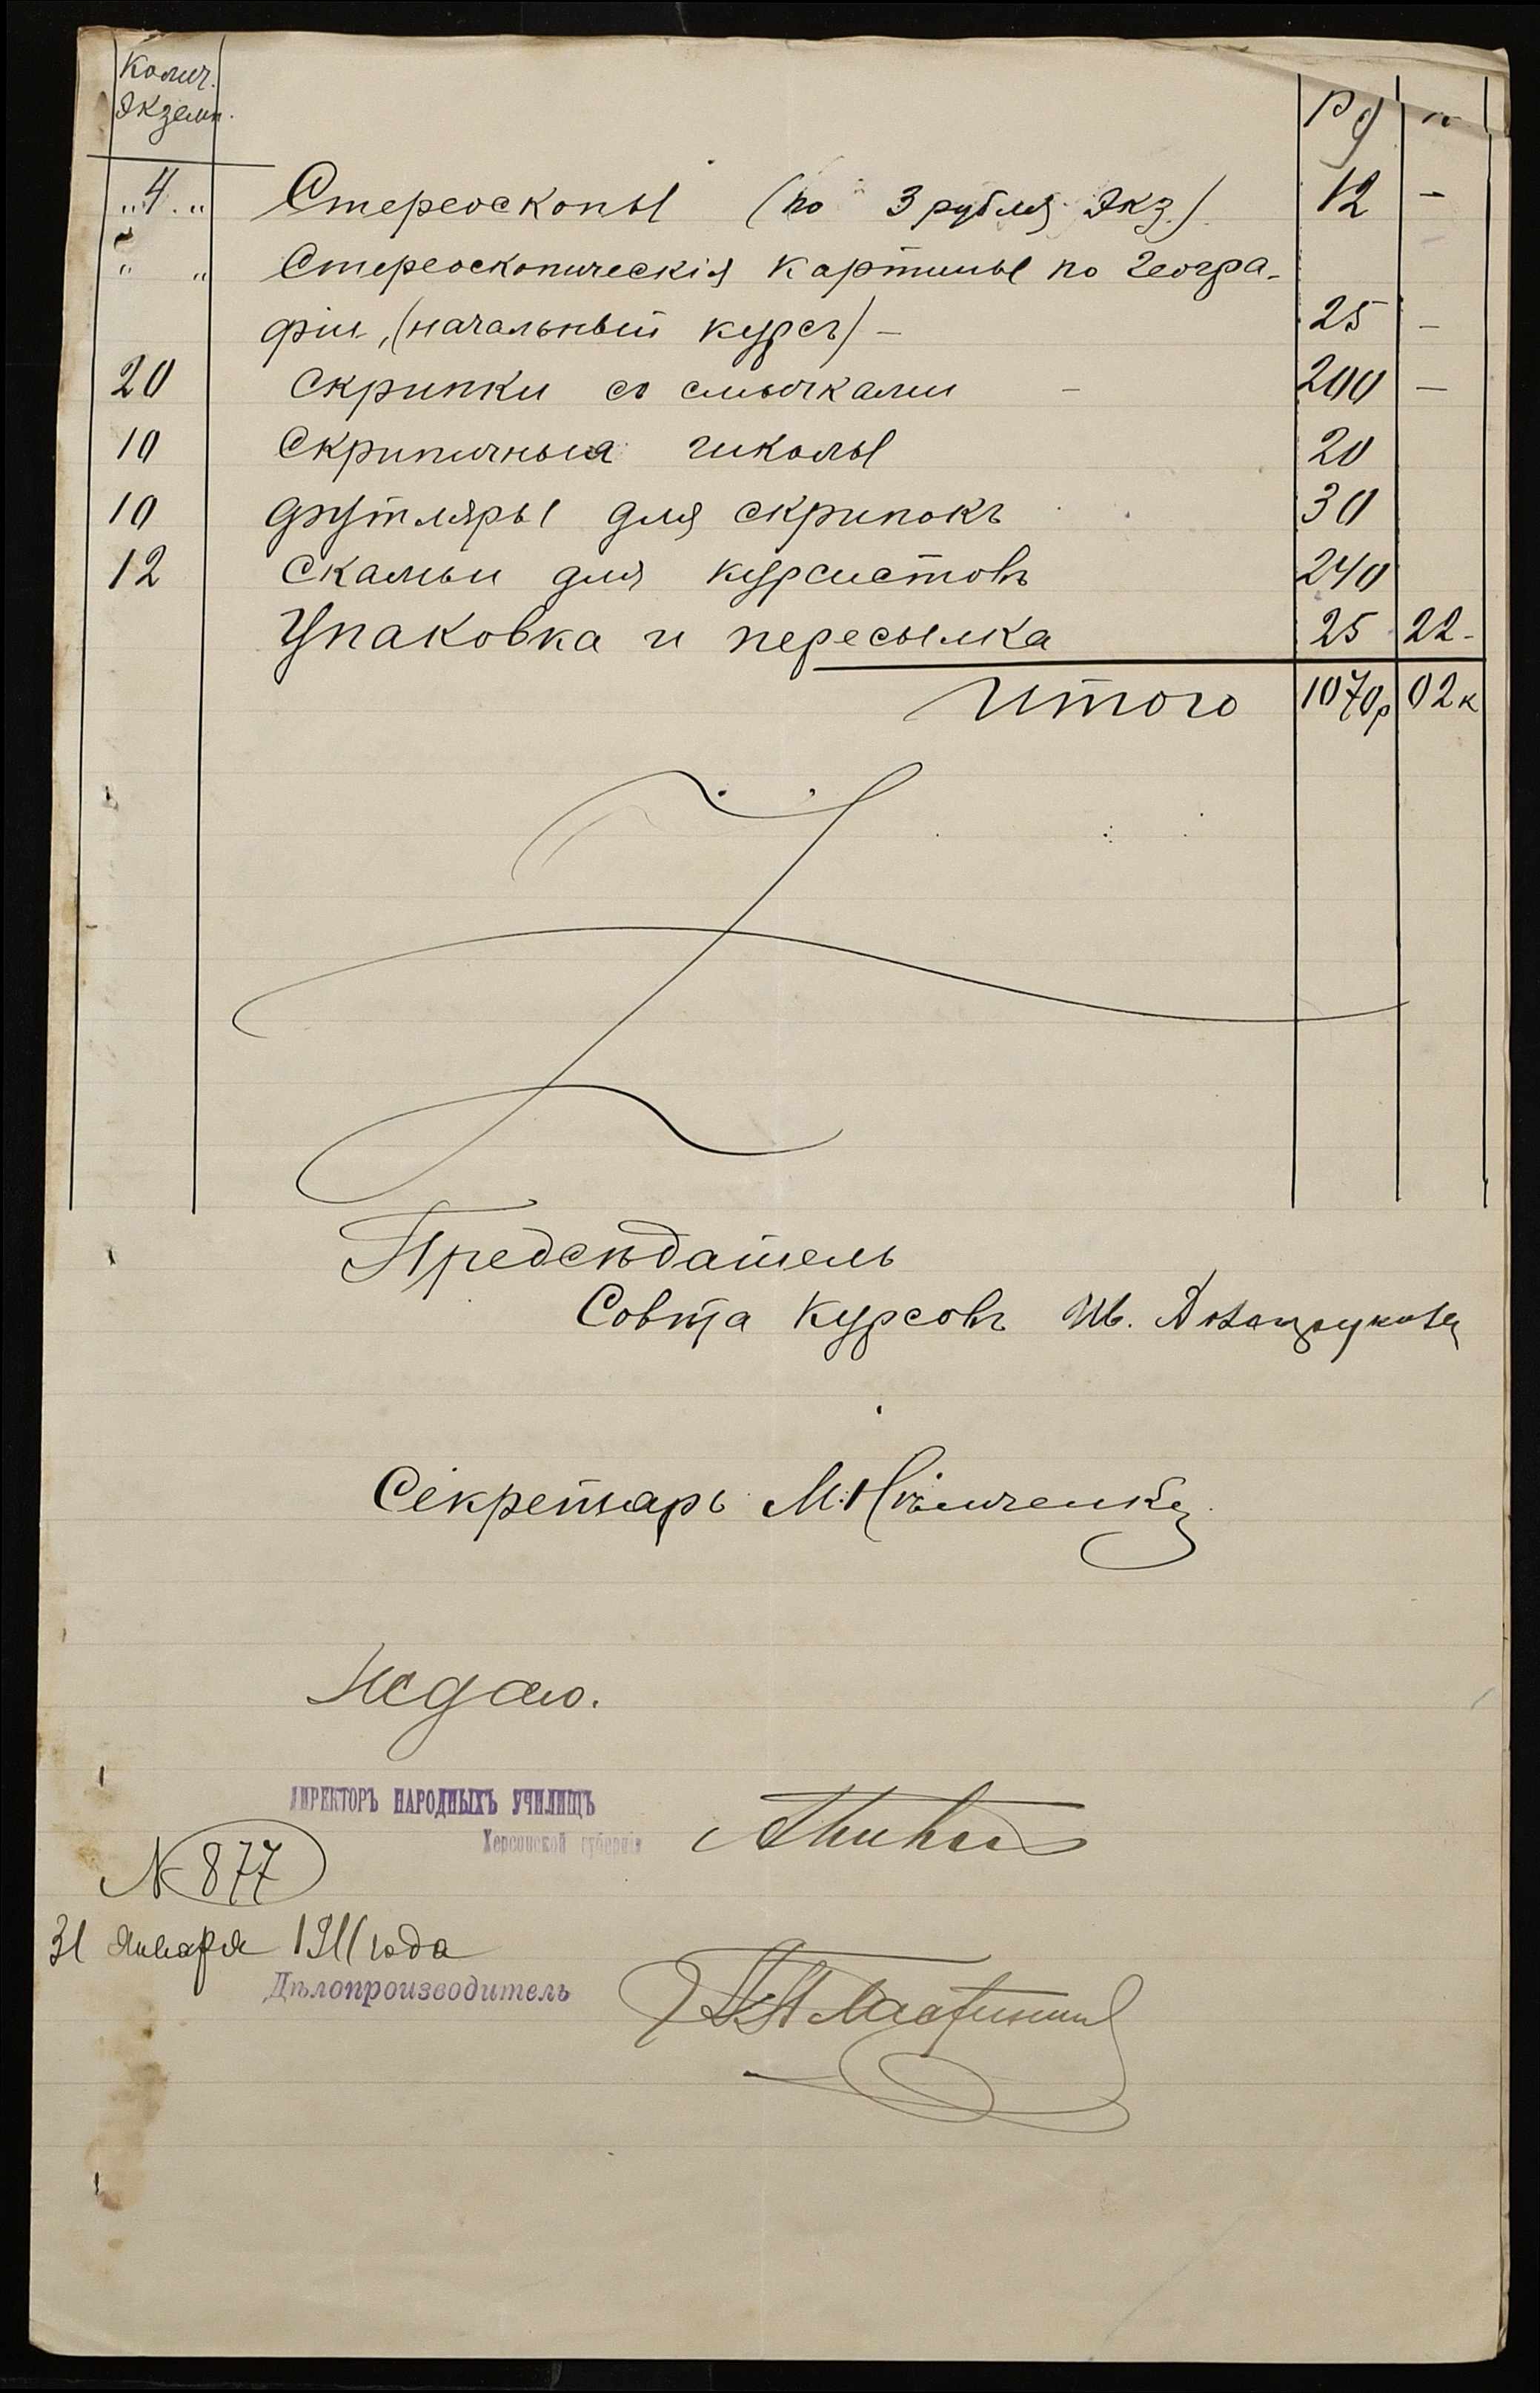 Колич.
Экземп.
Р к
„ 4 „ Стереоскопы (по 3 рубля экз.) 12 —
„ „ Стереоскопическія картины по геогра-
фіи, (начальный курсъ) — 25 —
20 Скрипки со смычками — 200 —
10 Скрипичныя школы 20
10 Футляры для скрипокъ 30
12 Скамьи для курсистовъ 240
Упаковка и пересылка 25 22 -
Итого 1070р 02к
Предсѣдатель
Совѣта Курсовъ Ив.
Секретарь М.
ДИРЕКТОРЪ НАРОДНЫХЪ УЧИЛИЩЪ
Херсонской губерніи
№ 877
31 Января 1911 года
Дѣлопроизводитель